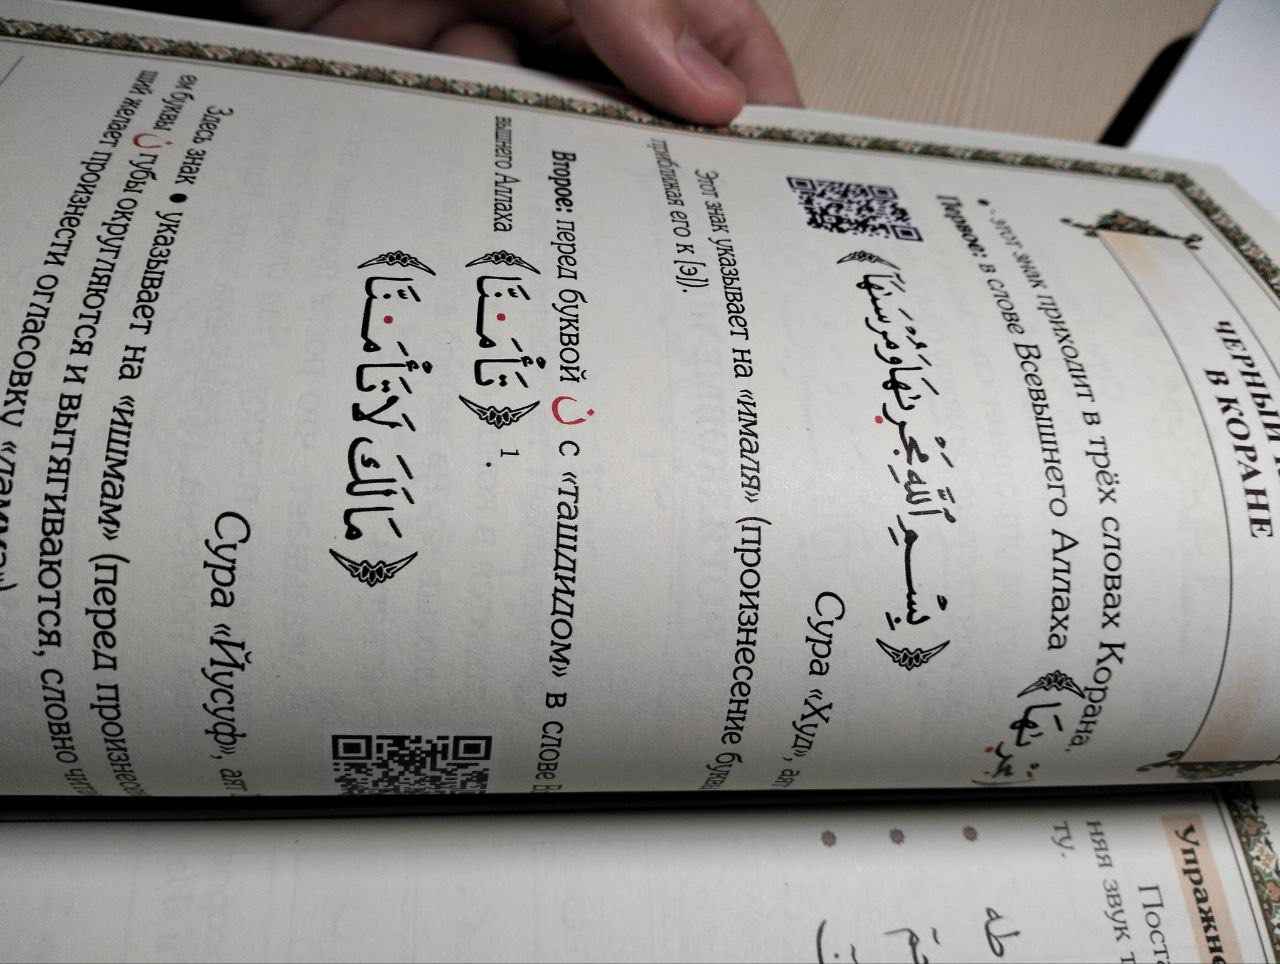 ЧЕРНЫЙ
В КОРАНЕ
● - этот знак приходит в трёх словах Корана.
Первое: в слове Всевышнего Аллаха ﴿
﴿بِسْمِ ٱللَّهِ مَجْر۪ىٰهَا وَمُرْسَىٰهَآ﴾
Сура «Худ», аят
Этот знак указывает на «ималя» (произнесение
приближая его к [э]).
Второе: перед буквой ن с «ташдидом» в слове
вышнего Аллаха ﴿تَأْمَ۬نَّا﴾ 1.
﴿مَا لَكَ لَا تَأْمَ۬نَّا﴾
Сура «Йусуф», аят
Здесь знак ● указывает на «ишмам» (перед
ем буквы ن губы округляются и вытягиваются, словно
щий желает произнести огласовку
Упражне
Поста
няя звук
ту.
● طه
●
●